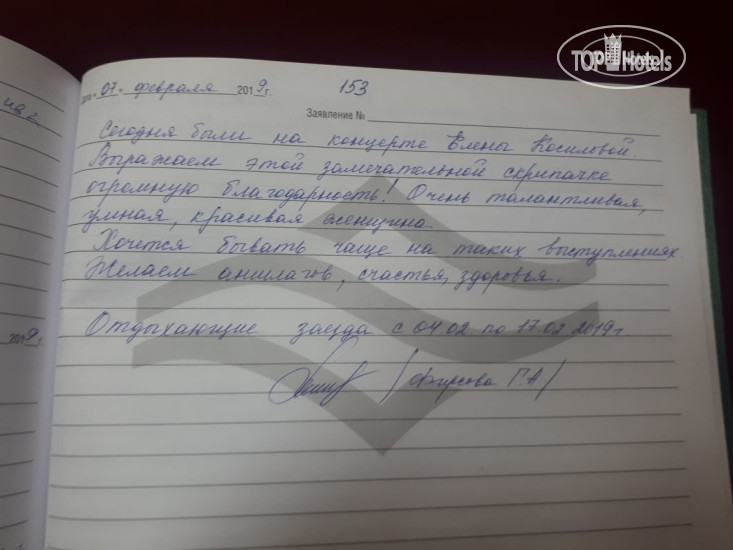 TOP Hotels
"07" февраля 2019г.
153
Заявление №
Сегодня были на концерте Елены Косиловой.
Выражаем этой замечательной скрипачке
огромную благодарность! Очень талантливая,
умная, красивая женщина.
Хочется бывать чаще на таких выступлениях
Желаем аншлагов, счастья, здоровья.
Отдыхающие заезда с 04.02 по 17.02 2019г
/Фирсова Г.А/
9г.